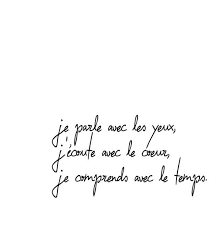 je parle avec les yeux,
j'écoute avec le coeur,
je comprends avec le temps.